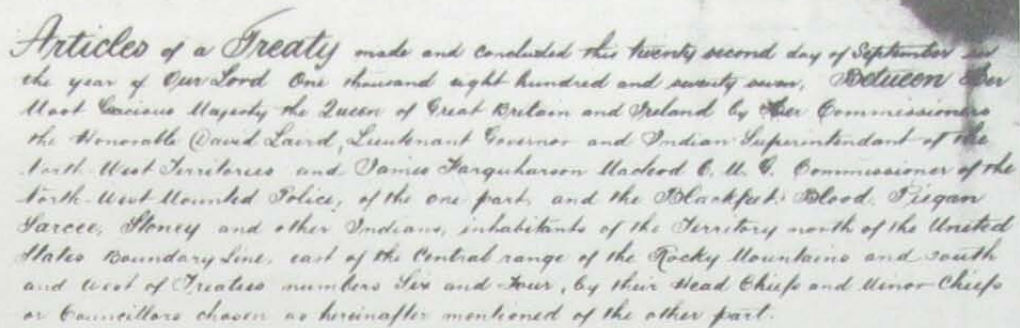 Articles of a Treaty made and concluded this twenty second day of September in
the year of Our Lord One thousand eight hundred and seventy seven, Between Her
Most Gracious Majesty the Queen of Great Britain and Ireland by Her Commissioners
the Honorable David Laird, Lieutenant Governor and Indian Superintendant of the
North-West Territories and James Farquharson Macleod C. M. G. Commissioner of the
North-West Mounted Police, of the one part, and the Blackfeet, Blood, Piegan
Sarcee, Stoney and other Indians, inhabitants of the Territory north of the United
States Boundary Line, east of the Central range of the Rocky Mountains and south
and west of Treaties numbers Six and Four, by their Head Chiefs and Minor Chiefs
or Councillors chosen as hereinafter mentioned of the other part.